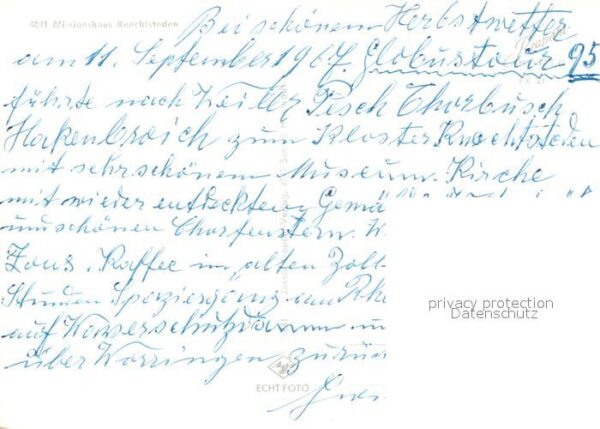 4041 Missionshaus Knechtsteden
Bei schönem Herbstwetter
am 11. September 1967. Globustour 95
führte nach Pesch Thorbusch
Hakenbroich zum Kloster Knechtsteden
mit sehr schönem Museum. Kirche
mit wieder entdeckten Gemä
und schönen Chorfenstern.
Zons. Kaffee im „alten Zoll
Stunden Spaziergang am Rhe
auf Wasserschutzdamm
über Worringen zurück
ECHT FOTO
privacy protection
Datenschutz